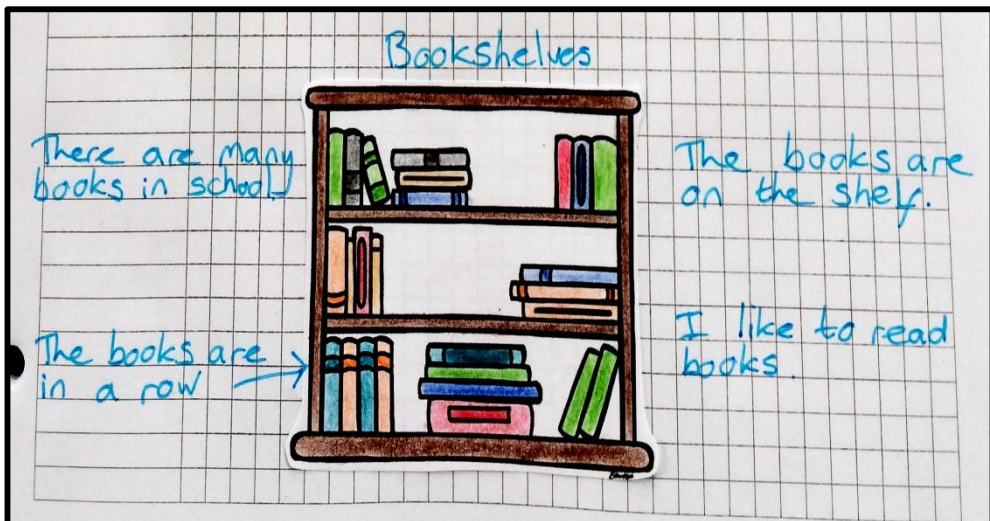 Bookshelves
There are many
books in school
The books are
in a row
The books are
on the shelf.
I like to read
books.